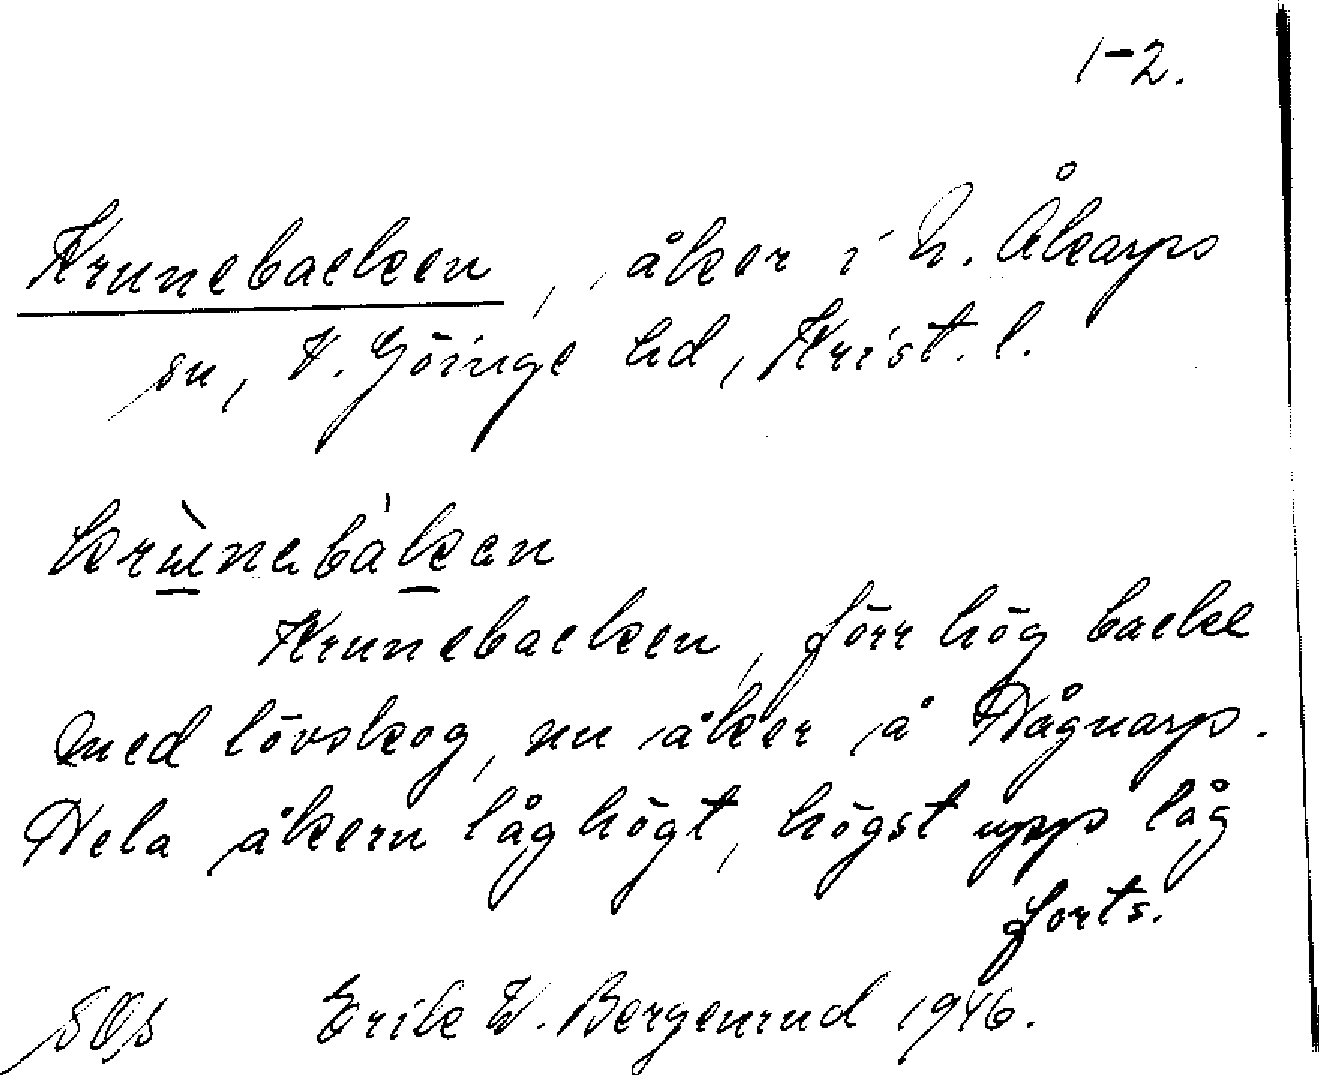 1-2.
Krunebacken, åker i N. Åkarps
sn, V. Göinge hd, Krist. l.
krùnebàken
Krunebacken, förr hög backe
med lövskog, nu åker å Hågnarp.
Hela åkern låg högt, högst upp låg
forts.
Erik W. Bergenrud 1946.